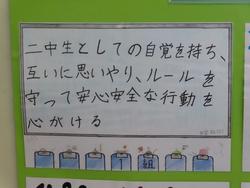 二中生としての自覚を持ち、
互いに思いやり、ルールを
守って安心安全な行動を
心がける
1組